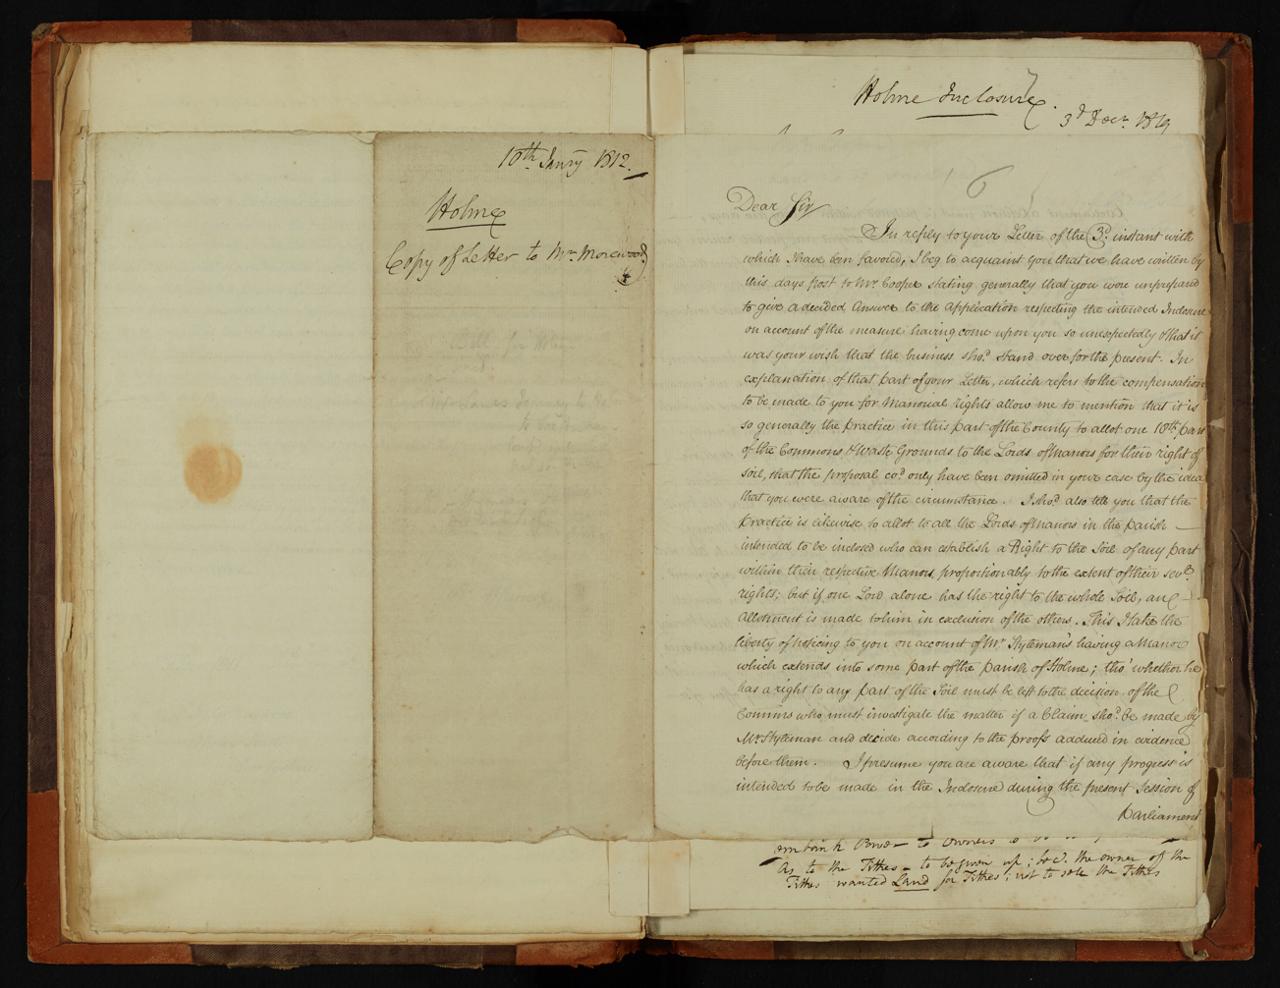 10th Janry 1812.
Holme
Copy of Letter to Mr Morewood
Holme Inclosure.
3d Decr 1819
6
Dear Sir
In reply to your Letter of the 3d instant with
which I have been favored, I beg to acquaint you that we have written by
this days post to Mr Cooper stating generally that you were unprepared
to give a decided Answer to the Application respecting the intended Inclosure
on account of the measure having come upon you so unexpectedly & that it
was your wish that the business shod stand over for the present. In
explanation of that part of your Letter, which refers to the compensation
to be made to you for Manorial rights allow me to mention that it is
so generally the practice in this part of the County to allot one 18th part
of the Commons & Waste Grounds to the Lords of Manors for their right of
soil, that the proposal cod only have been omitted in your case by the idea
that you were aware of the circumstance. I shod also tell you that the
practice is likewise to allot to all the Lords of Manors in the parish
intended to be inclosed who can establish a Right to the Soil of any part
within their respective Manors, proportionably to the extent of their sevl
rights; but if one Lord alone has the right to the whole Soil, an
allotment is made to him in exclusion of the others. This I take the
liberty of noticing to you on account of Mr Styleman's having a Manor
which extends into some part of the parish of Holme; tho' whether he
has a right to any part of the Soil must be left to the decision of the
Commrs who must investigate the matter if a Claim shod be made by
Mr Styleman and decide according to the proofs adduced in evidence
before them. I presume you are aware that if any progress is
intended to be made in the Inclosure during the present Session of
Parliament
Power to Owners
As to the Tithes - to be given up; the owner of the
Tithes wanted Land for Tithes; not to sell the Tithes